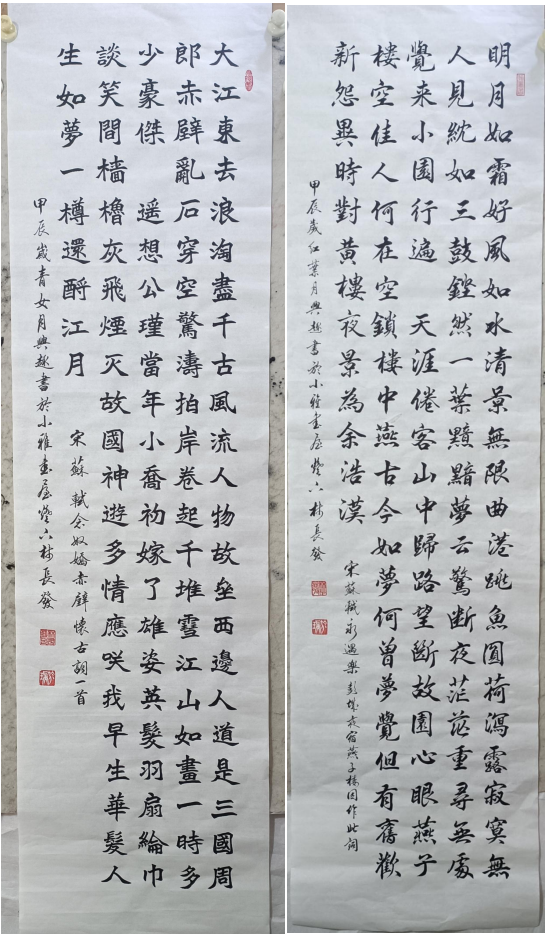 大江東去浪淘盡千古風流人物故壘西邊人道是三國周
郎赤壁亂石穿空驚濤拍岸卷起千堆雪江山如畫一時多
少豪傑 遥想公瑾當年小喬初嫁了雄姿英髮羽扇綸巾
談笑間檣櫓灰飛煙灭故國神遊多情應咲我早生華髮人
生如夢一樽還酹江月
宋蘇軾念奴嬌赤壁懷古詞一首
甲辰歲青女月興趣書於小雅畫屋六樓長發
明月如霜好風如水清景無限曲港跳魚圓荷瀉露寂寞無
人見紞如三鼓鏗然一葉黯黯夢云驚斷夜茫茫重尋無處
覺来小園行遍 天涯倦客山中歸路望斷故園心眼燕子
樓空佳人何在空鎖樓中燕古今如夢何曾夢覺但有舊歡
新怨異時對黃樓夜景為余浩漠
宋蘇軾永遇樂彭城夜宿燕子樓因作此詞
甲辰歲紅葉月興趣書於小雅畫屋六樓長發